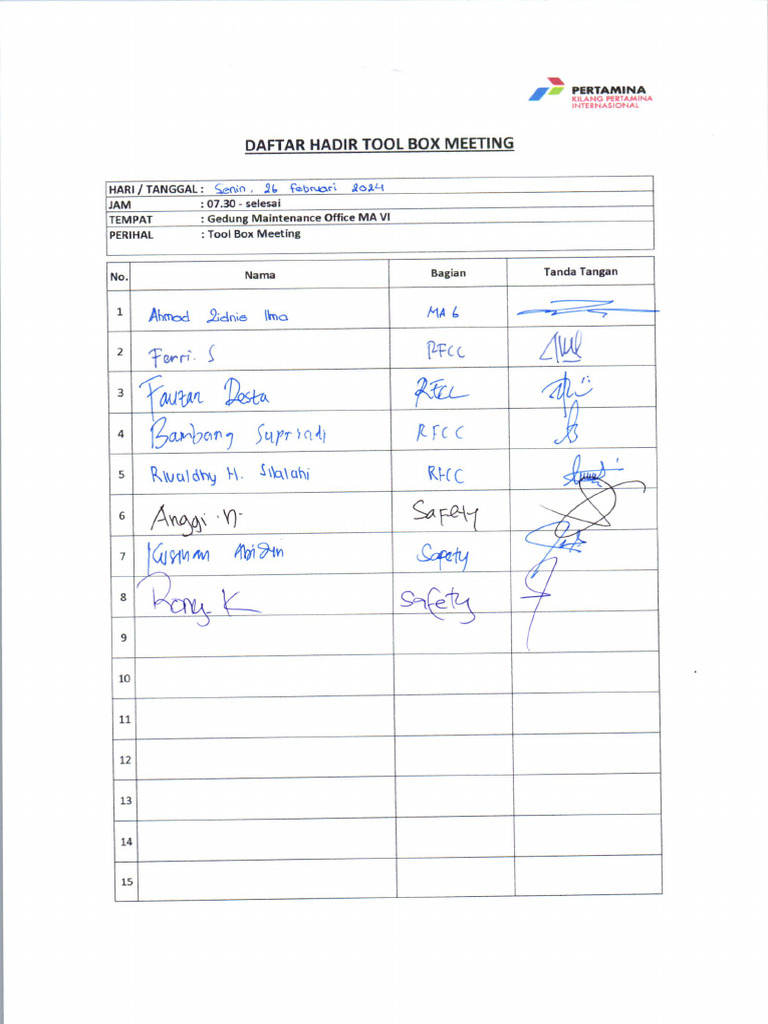 PERTAMINA
KILANG PERTAMINA
INTERNASIONAL
DAFTAR HADIR TOOL BOX MEETING
HARI / TANGGAL : Senin, 26 Februari 2024
JAM : 07.30 - selesai
TEMPAT : Gedung Maintenance Office MA VI
PERIHAL : Tool Box Meeting
No. Nama Bagian Tanda Tangan
1 Ahmad Zidnie Ilma MA 6
2 Ferri. S RFCC
3 Fauzan Desta RFCC
4 Bambang Supriadi RFCC
5 Rivaldhy H. Silalahi RFCC
6 Anggi .N Safety
7 Kusman Abidin Safety
8 Rony. K Safety
9
10
11
12
13
14
15